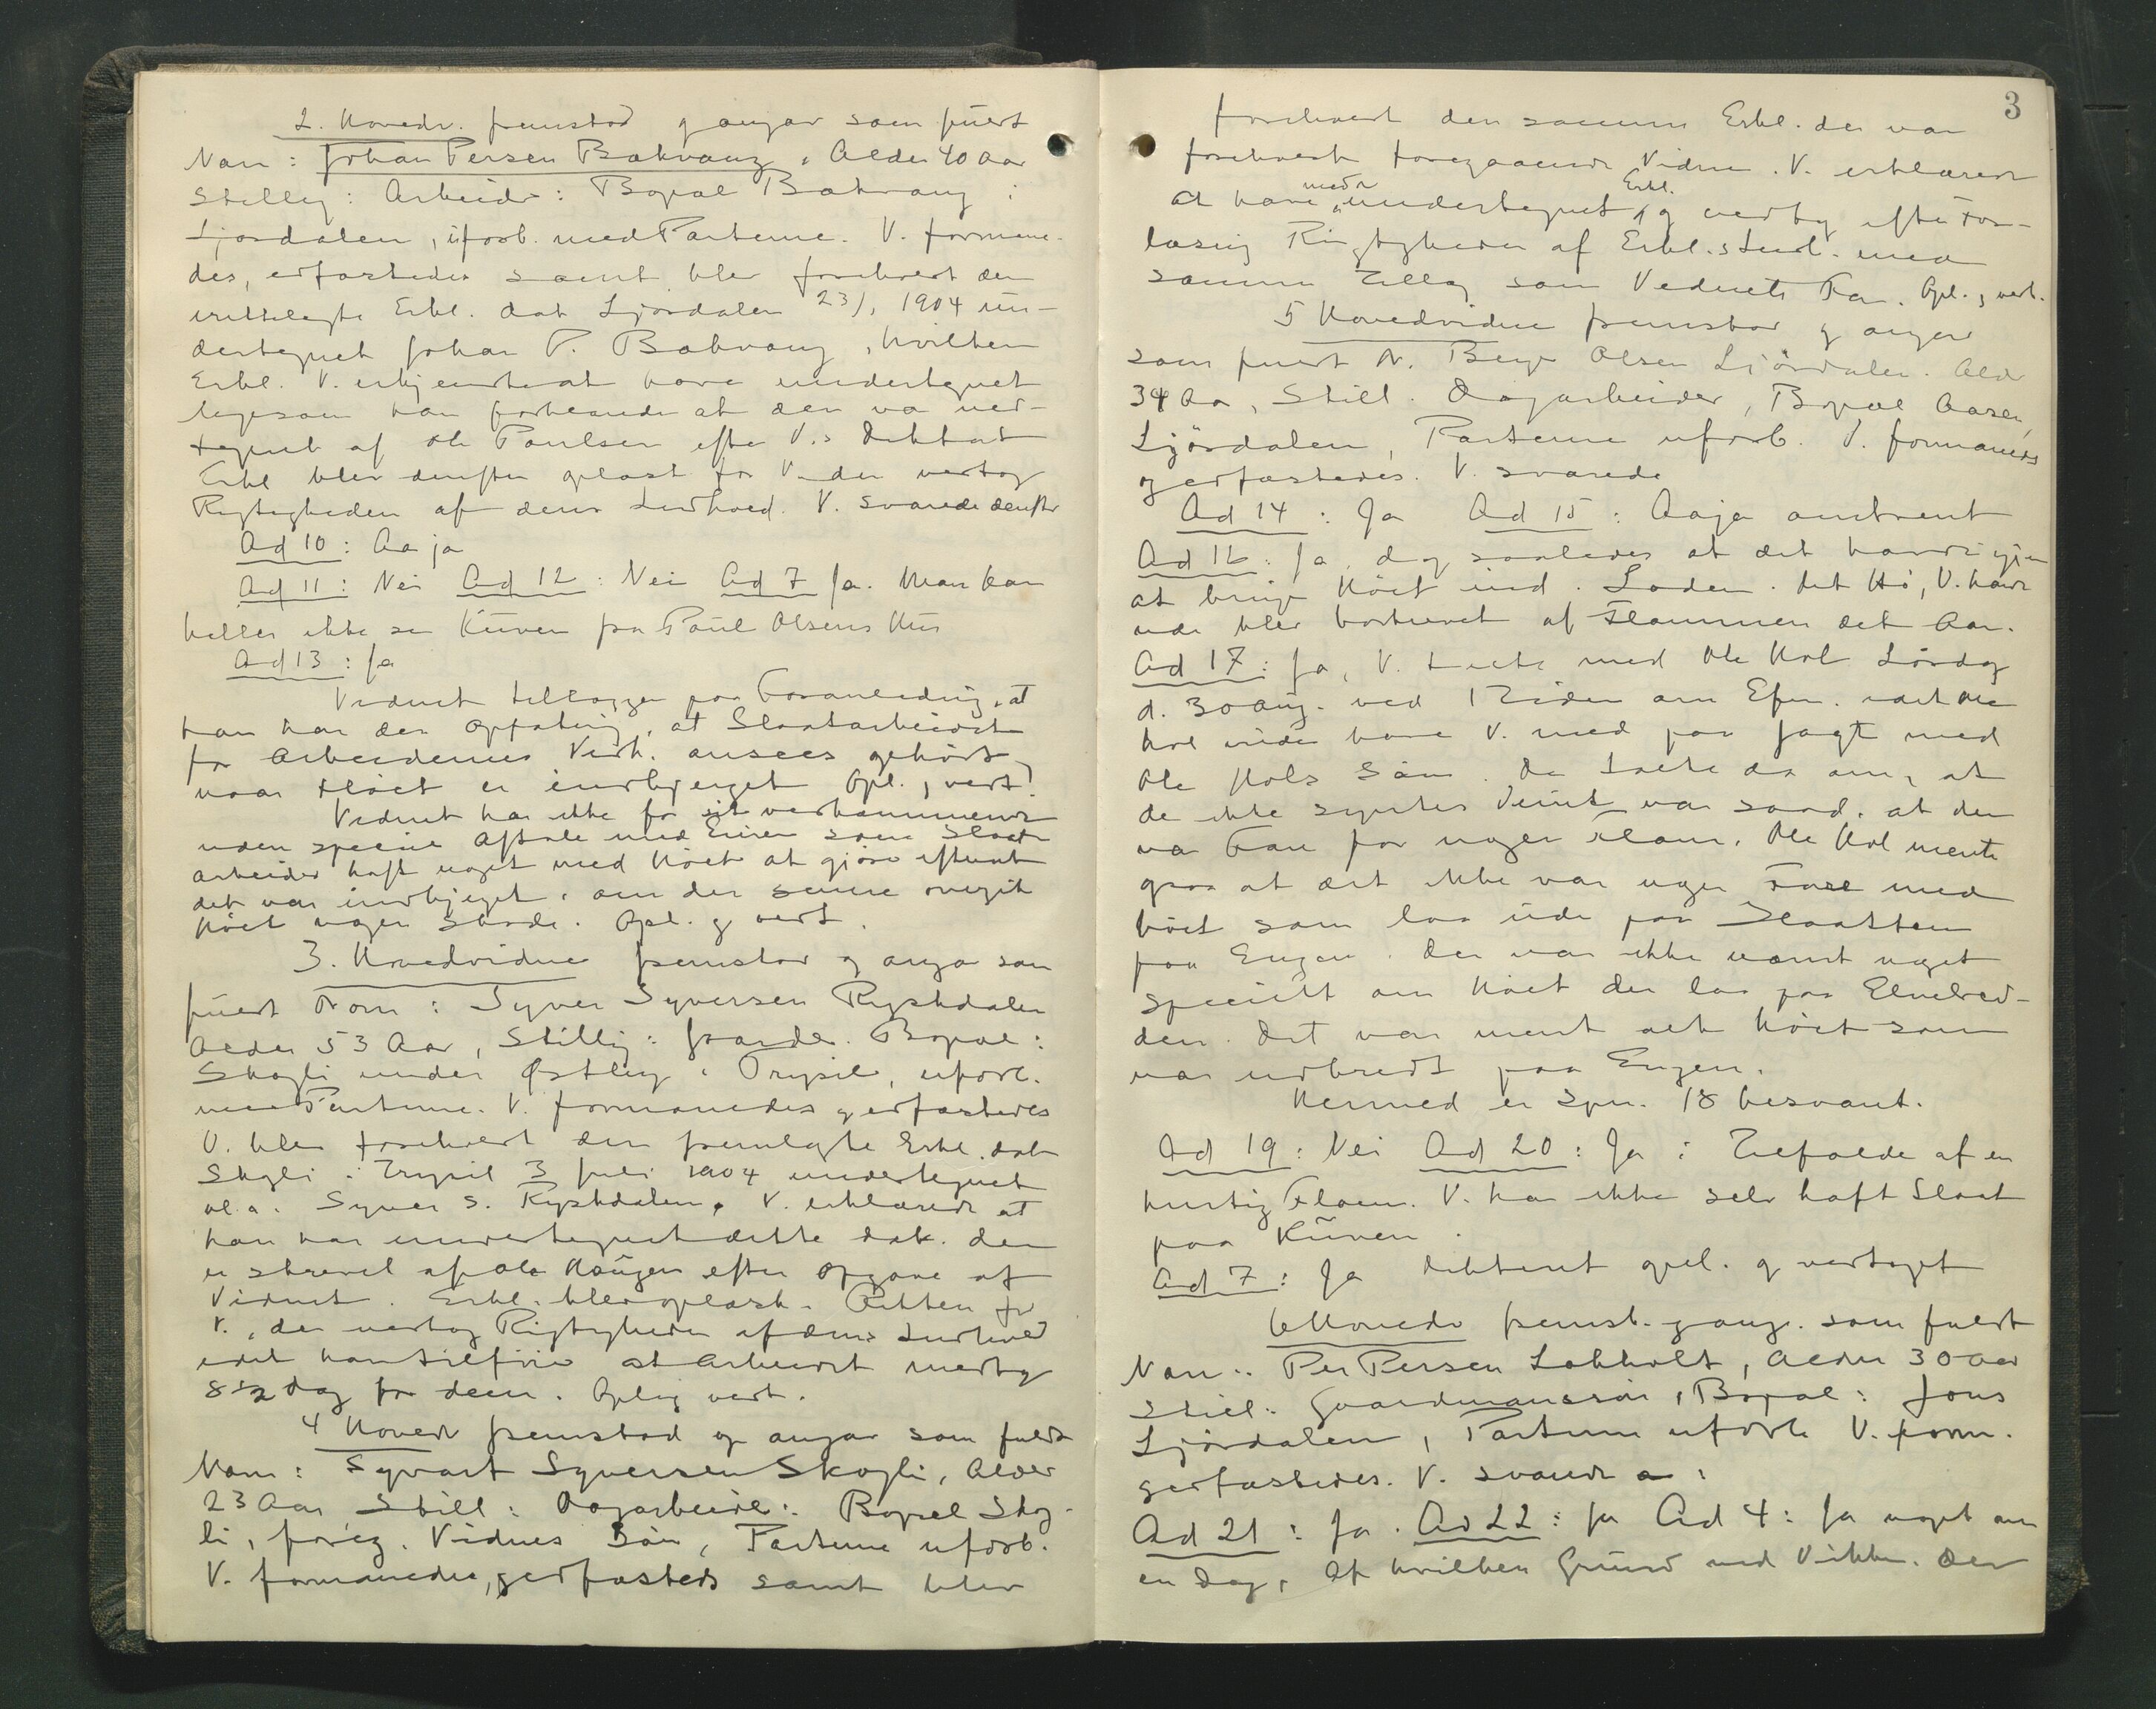 2. Hovedv. fremstod og angav som fuldt
Navn: Johan Persen Bakvang, Alder 40 Aar
Stilling: Arbeider: Bopæl Bakvang i
Ljørdalen, uforb. med Parterne. V. formane-
des, edfæstedes samt blev forehvert den
irettelagte Erkl. dat Ljørdalen 23/, 1904 un-
dertegnet Johan P. Bakvang, hvilken
Erkl. V. erkjendte at have undertegnet
ligesom han forklarede at den va ned-
tegnet af Ole Paulsen efter V.s Diktat
Erkl blev derefter oplæst for V. der vedtog
Rigtigheden af dens Indhold. V. svarede derefter
Ad 10: Aa ja
Ad 11: Nei Ad 12: Nei Ad 7 Ja. Man kan
heller ikke se Kuven fra Paul Olsens Hus
Ad 13: Ja
Vidnet tillægger paa Foranledning, at
han har den Opfatning, at Slaatarbeidet
for Arbeidernes Vedk. ansees gjort,
naar Høiet er indbjerget Opl., vedt.
Vidnet har ikke for sit vedkommende
uden speciel Aftale med Eieren som Slaatte
arbeider haft noget med Høiet at gjøre efterat
det var indbjerget, om der senere overgik
Høiet nogen Skade. Opl. og vedt.
3. Hovedvidne fremstod og angav som
fuldt Navn: Syver Syversen Ryskdalen
Alder 53 Aar, Stilling: Jordbr. Bopæl:
Skogli under Østby i Trysil, uforb.
med Parterne. V. formanedes og edfæstedes
V. blev forehvert den fremlagte Erkl. dat
Skogli i Trysil 3 Juli 1904 undertegnet
bl.a. Syver S. Ryskdalen. V. erklærede at
han har undertegnet dette Dok. den
er skrevet af Ole Haugen efter Opgave af
Vidnet. Erkl. blev oplæst i Retten for
V., der vedtog Rigtigheden af dens Indhold
idet han tilføier at Arbeidet medtog
8 1/2 Dag for dem. Opl. og vedt.
4 Hovedv fremstod og angav som fuldt
Navn: Syvart Syversen Skogli, Alder
23 Aar Still: Dagarbeider: Bopæl Skog-
li, foreg. Vidnes Søn, Parterne uforb.
V. formanedes, og edfæstedes samt blev
3
forehvert den samme Erkl. der var
forehvert foregaaende Vidne. V. erklærede
at have medundertegnet Erkl. og vedtog efter Op-
læsning Rigtigheden af Erkl.s Indh. med
samme Tillæg som Vidnets Far. Opl. og vedt.
5 Hovedvidne fremstod og angav
som fuldt N. Olsen Ljørdalen. Alder
34 Aar, Still. Dagarbeider, Bopæl Aasen,
Ljørdalen, Parterne uforb. V. formanedes
og edfæstedes. V. svarede
Ad 14: Ja Ad 15: Aaja omtrent
Ad 16: Ja, dog saaledes at det havdes igjen
at bringe Høiet ind i Laden. Det Hø, V. havde
ude blev bortrevet af Flommen det Aar.
Ad 17: Ja, V. talte med Ole Hol Lørdag
d. 30 Aug. ved 1 Tiden om Efm. idet Ole
Hol vilde have V. med paa Jagt med
Ole Hols Søn. De talte da om, at
de ikke syntes Veiret var saad. at der
va Fare for nogen Flom. Ole Hol mente
ogsaa at det ikke var nogen Fare med
høiet som laa ude paa Slaatten
paa Engen. Der var ikke nævnt noget
specielt om Høiet der laa paa Elvebred-
den. Det var ment alt Høiet som
var udbredt paa Engen.
Hermed er Spm. 18 besvaret.
Ad 19: Nei Ad 20: Ja i Tilfælde af en
hurtig Flom. V. har ikke selv haft Slaat
paa Kuven.
Ad 7: Ja Dikteret opl. og vedtaget
6 Hovedv fremst. og ang. som fuldt
Navn: Per Persen Lokholt, Alder 30 Aar
Still: Gaardmandssøn, Bopæl: Jons
Ljørdalen, Parterne uforb V. form.
og edfæstedes. V. svarede:
Ad 21: Ja. Ad 22: Ja Ad 4: Ja noget om
en Dag, af hvilken Grund ved V ikke. Der